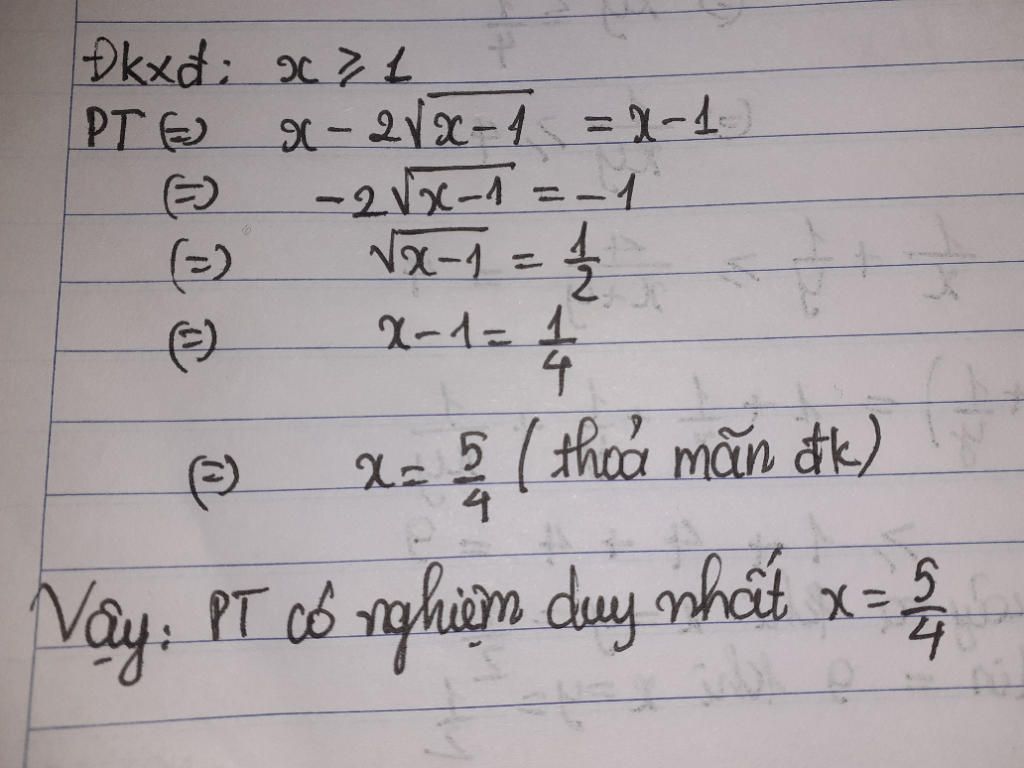 Đkxđ: x ≥ 1
PT (=) x - 2√(x-1) = x-1
(=) -2√(x-1) = -1
(=) √(x-1) = 1/2
(=) x-1 = 1/4
(=) x = 5/4 (thoả mãn đk)
Vậy: PT có nghiệm duy nhất x = 5/4